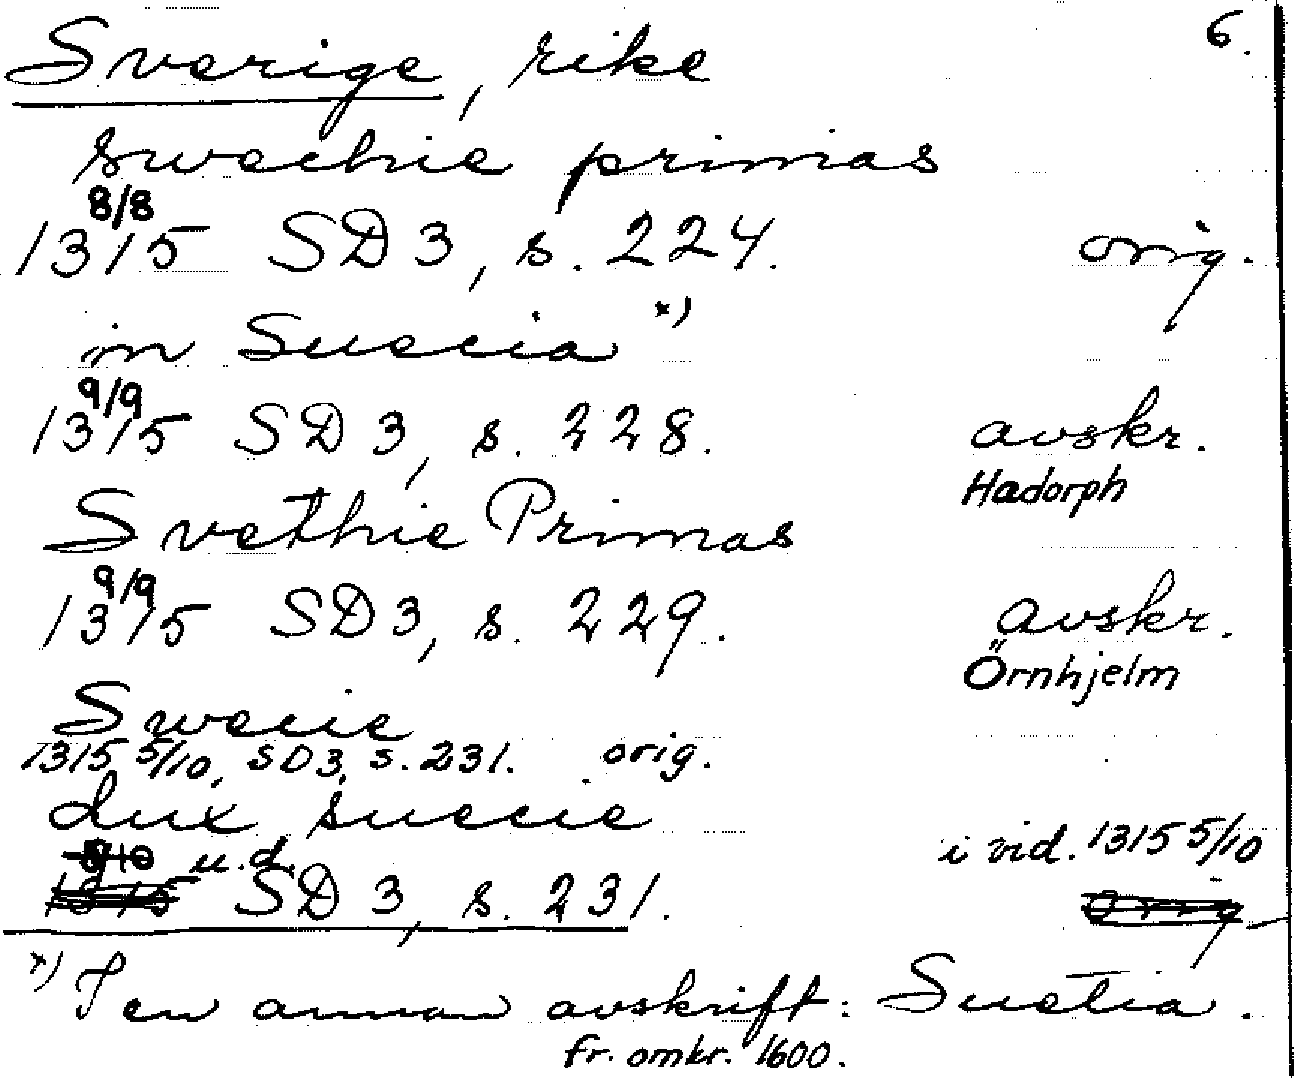 Sverige, rike 6.
swechie primas
8/8
1315 SD 3, s. 224. orig.
in Suecia x)
9/9
1315 SD 3, s. 228. avskr.
Hadorph
Svethie Primas
9/9
1315 SD 3, s. 229. avskr.
Örnhjelm
Swecie
1315 5/10, SD 3, s. 231. orig.
dux suecie
u.d. i vid. 1315 5/10
1315 SD 3, s. 231. orig
x) I en annan avskrift: Suetia.
fr. omkr. 1600.